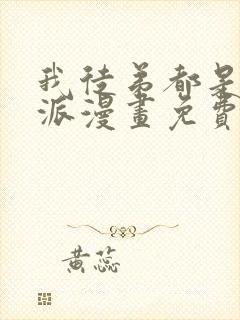 我徒弟都是
派漫畫免費
黃蕊